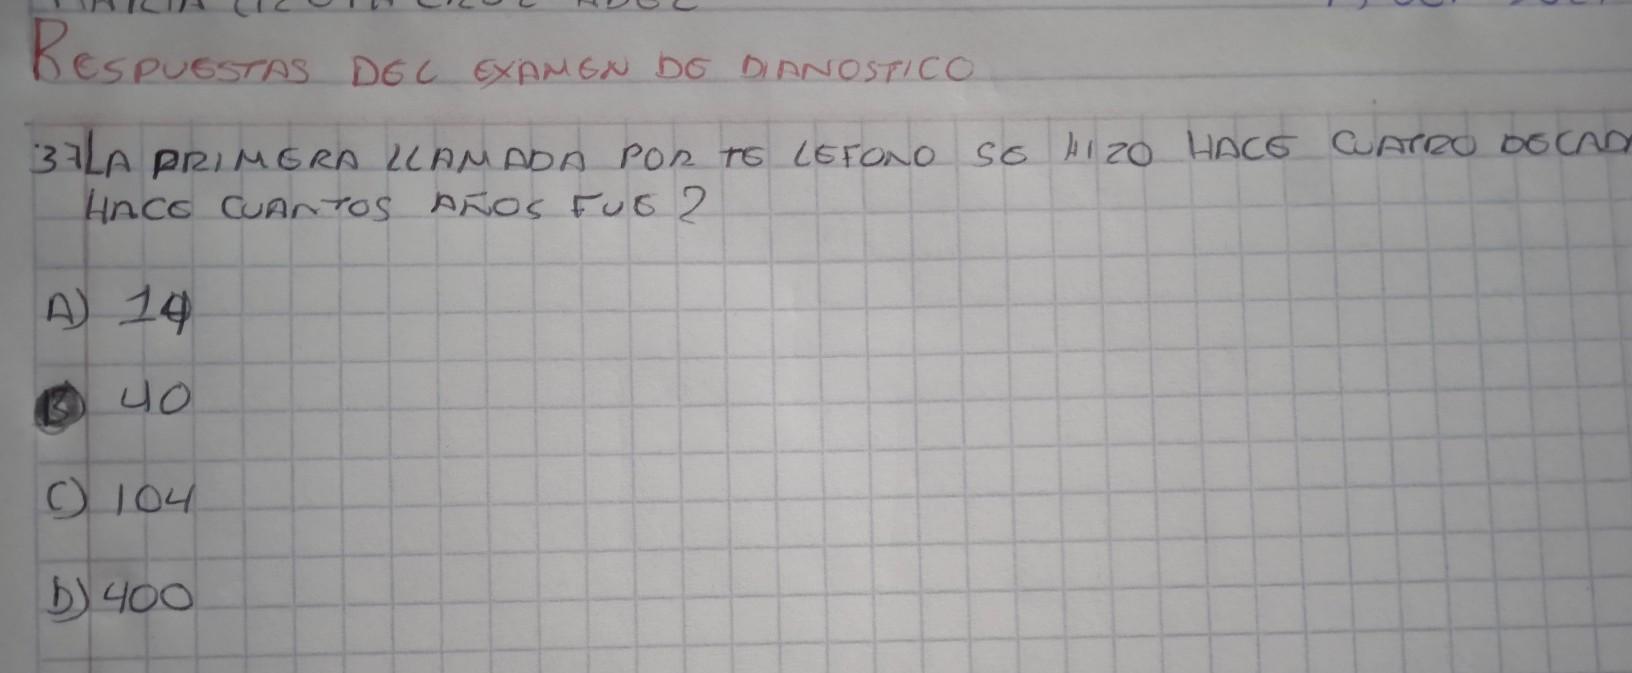 RESPUESTAS DEL EXAMEN DE DIANOSTICO
37 LA PRIMERA LLAMADA POR TE LEFONO SE HIZO HACE CUATRO DECAD
HACE CUANTOS AÑOS FUE?
A) 14
B) 40
C) 104
D) 400